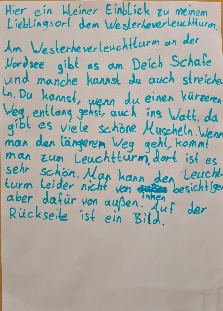 Hier ein kleiner Einblick zu meinem
Lieblingsort dem Westerheverleuchtturm.
Am Westerheverleuchtturm an der
Nordsee gibt es am Deich Schafe
und manche kannst du auch streiche-
ln. Du kannst, wenn du einen kürzeren
Weg entlang gehst, auch ins Watt, da
gibt es viele schöne Muscheln. Wenn
man den längeren Weg geht, kommt
man zum Leuchtturm, dort ist es
sehr schön. Man kann den Leucht-
turm leider nicht von innen besichtigen
aber dafür von außen. Auf der
Rückseite ist ein Bild.